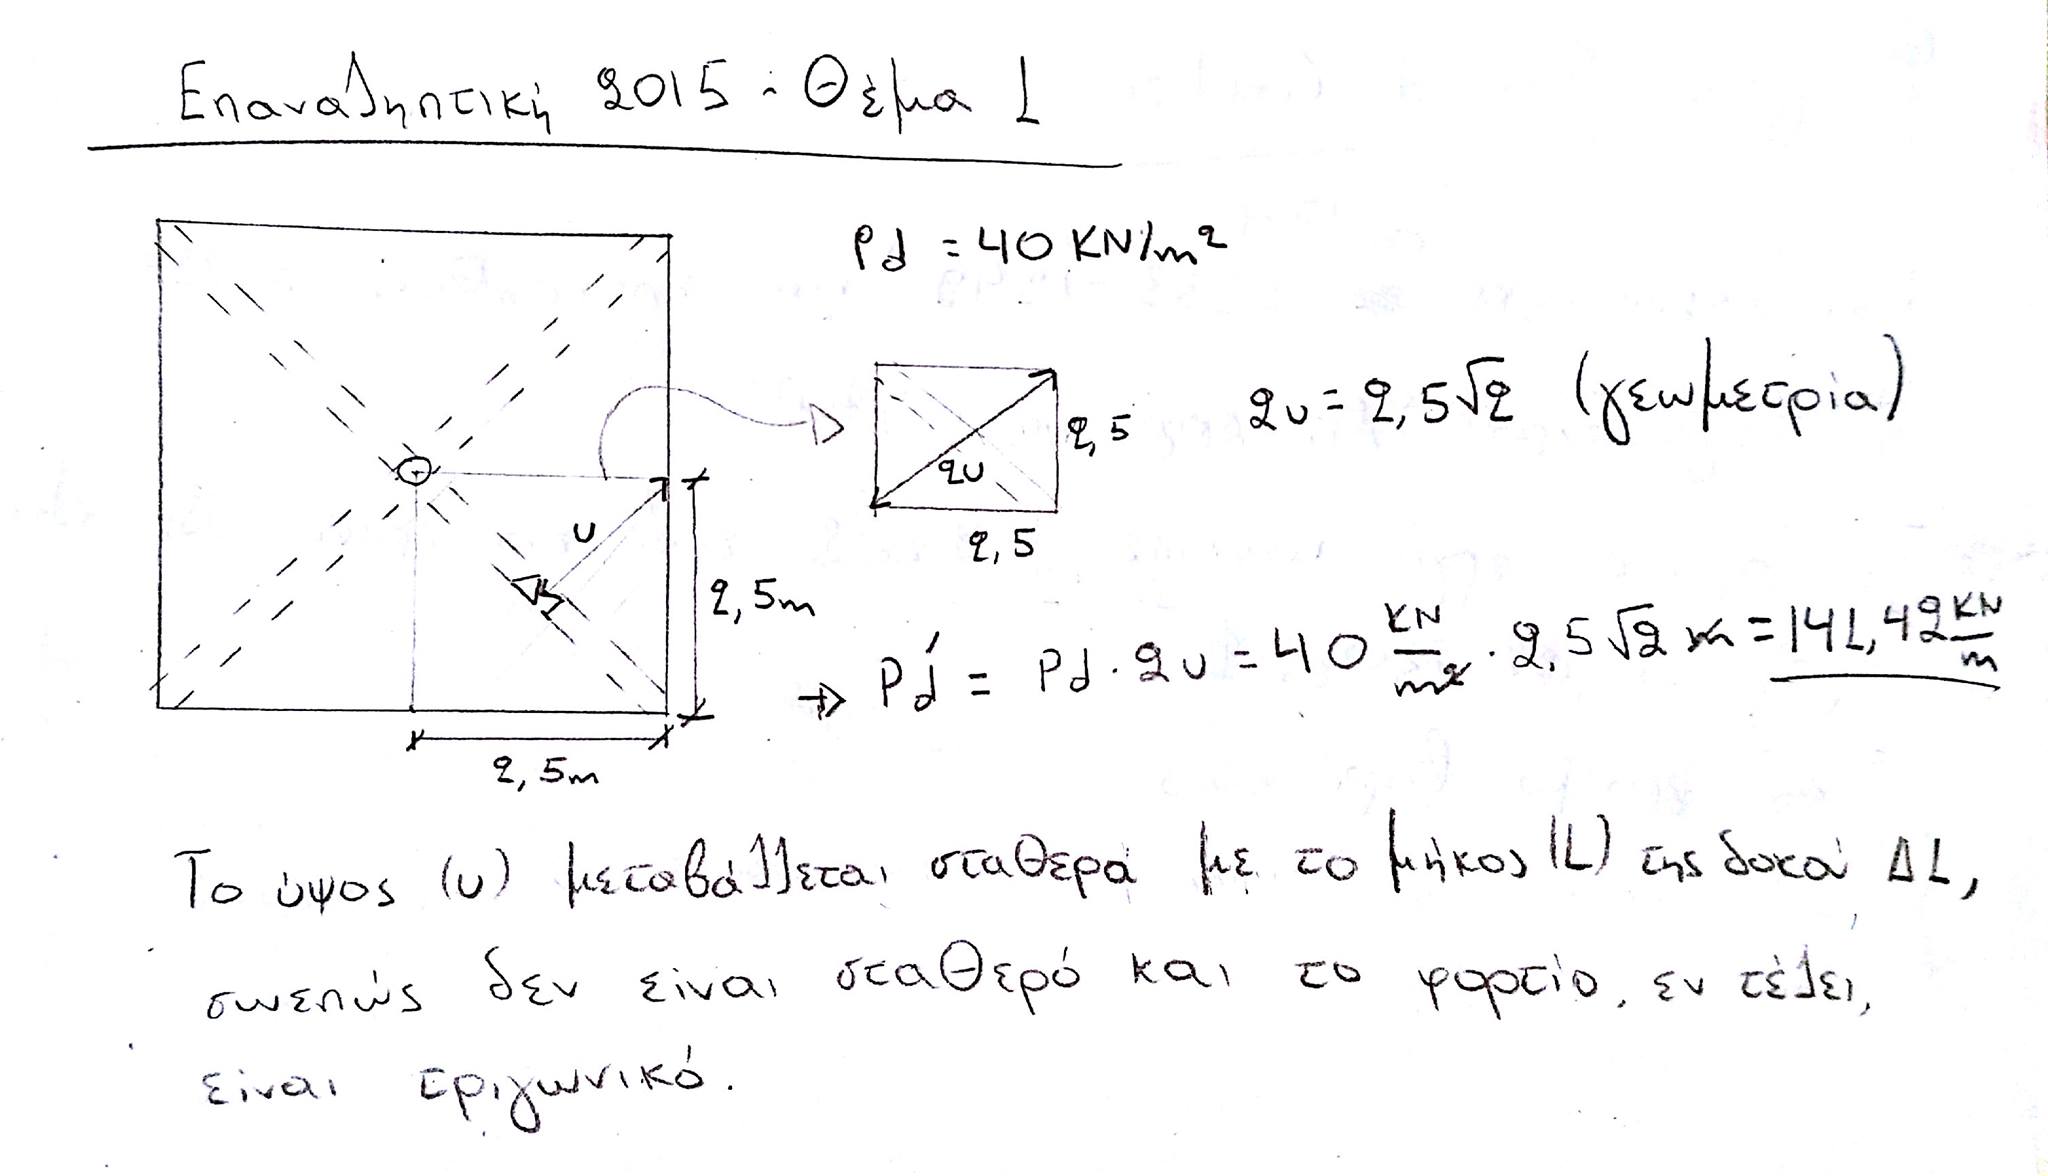 Επαναληπτική 2015: Θέμα 1
Pd = 40 KN/m²
2,5
2υ
2,5
2υ = 2,5√2 (γεωμετρία)
υ
2,5m
2,5m
→ Pd' = Pd · 2υ = 40 KN/m² · 2,5√2 m = 141,42 KN/m
Το ύψος (υ) μεταβάλλεται σταθερά με το μήκος (L) της δοκού Δ1,
συνεπώς δεν είναι σταθερό και το φορτίο, εν τέλει,
είναι τριγωνικό.